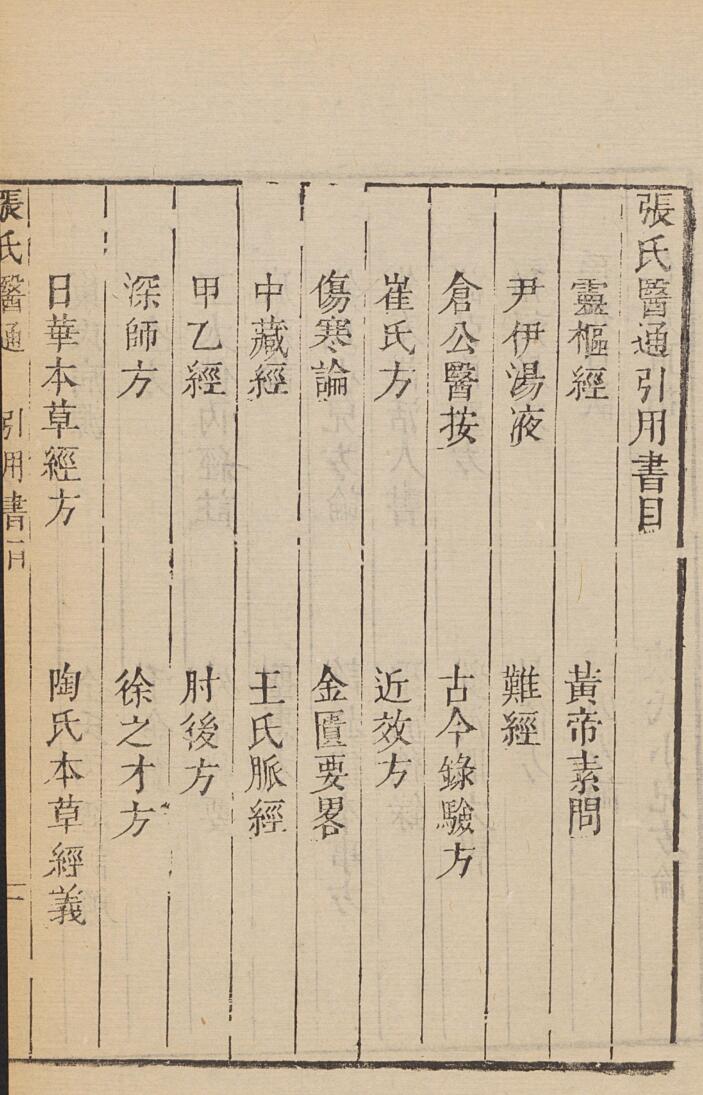 張氏醫通引用書目
靈樞經　黃帝素問
尹伊湯液　難經
倉公醫按　古今錄驗方
崔氏方　近效方
傷寒論　金匱要畧
中藏經　王氏脈經
甲乙經　肘後方
深師方　徐之才方
日華本草經方　陶氏本草經義
張氏醫通　引用書目